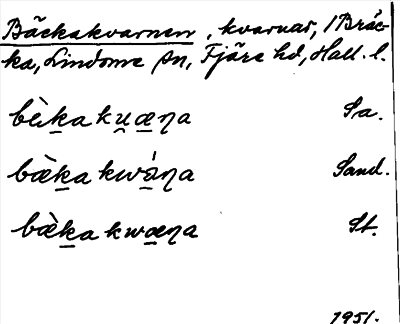 Bäckakvarnen, kvarnar, / Bräc-
ka, Lindome sn, Fjäre hd, Hall. l.
bèika kṷæɳa Sa.
bæ̀ka kwǽɳa Sand.
bæ̀ka kwæɳa St.
1951.